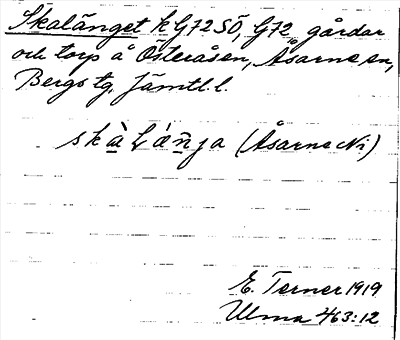 Skalänget k G72SÖ, G72, gårdar
och torp å Österåsen, Åsarne sn,
Bergs tg, Jämtl. l.
(Åsarne Ni)
E. Terner 1919
Ulma 463:12